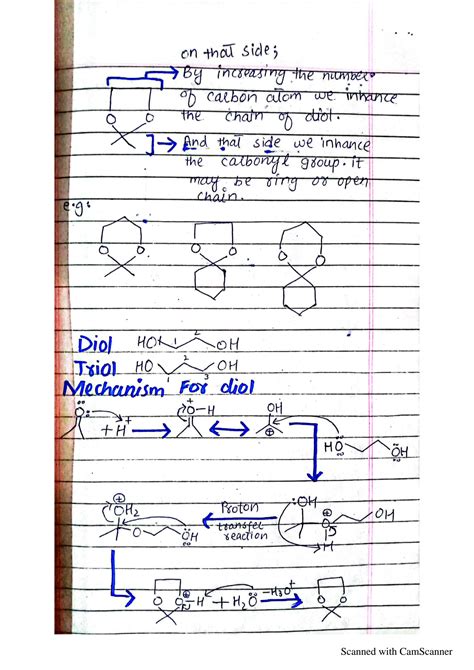 on that side;
→ By increasing the number
of carbon atom we inhance
the chain of diol.
O O
→ And that side we inhance
the carbonyl group. it
may be ring or open
chain.
e.g:
O O O O O O
Diol HO 1 2 OH
Triol HO 1 2 3 OH
Mechanism For diol
:O: + H+ → +O-H ↔ OH ⊕
HÖ ÖH
⊕ OH2 O ÖH ← Proton transfer reaction :OH O⊕ OH H
O O⊕-H + H2O -H3O+ → O O
Scanned with CamScanner